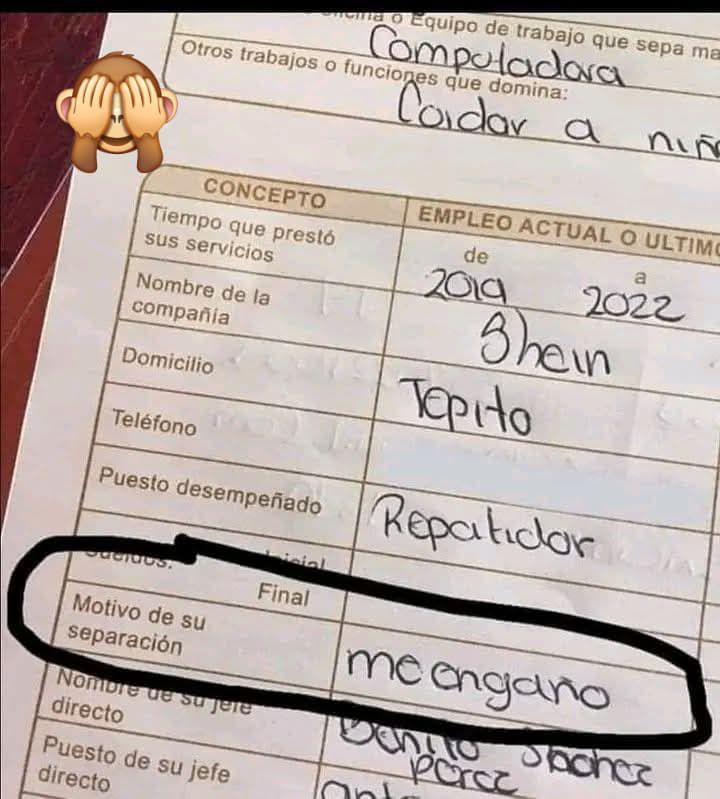 o Equipo de trabajo que sepa ma
Compuladora
Otros trabajos o funciones que domina:
Coidar a niñ
CONCEPTO
EMPLEO ACTUAL O ULTIMO
Tiempo que prestó
sus servicios
de a
2019 2022
Nombre de la
compañía
Shein
Domicilio
Tepito
Teléfono
Puesto desempeñado
Repatidor
Sueldos: Inicial
Final
Motivo de su
separación
me engaño
Nombre de su jefe
directo
Benito Sachez
Perez
Puesto de su jefe
directo